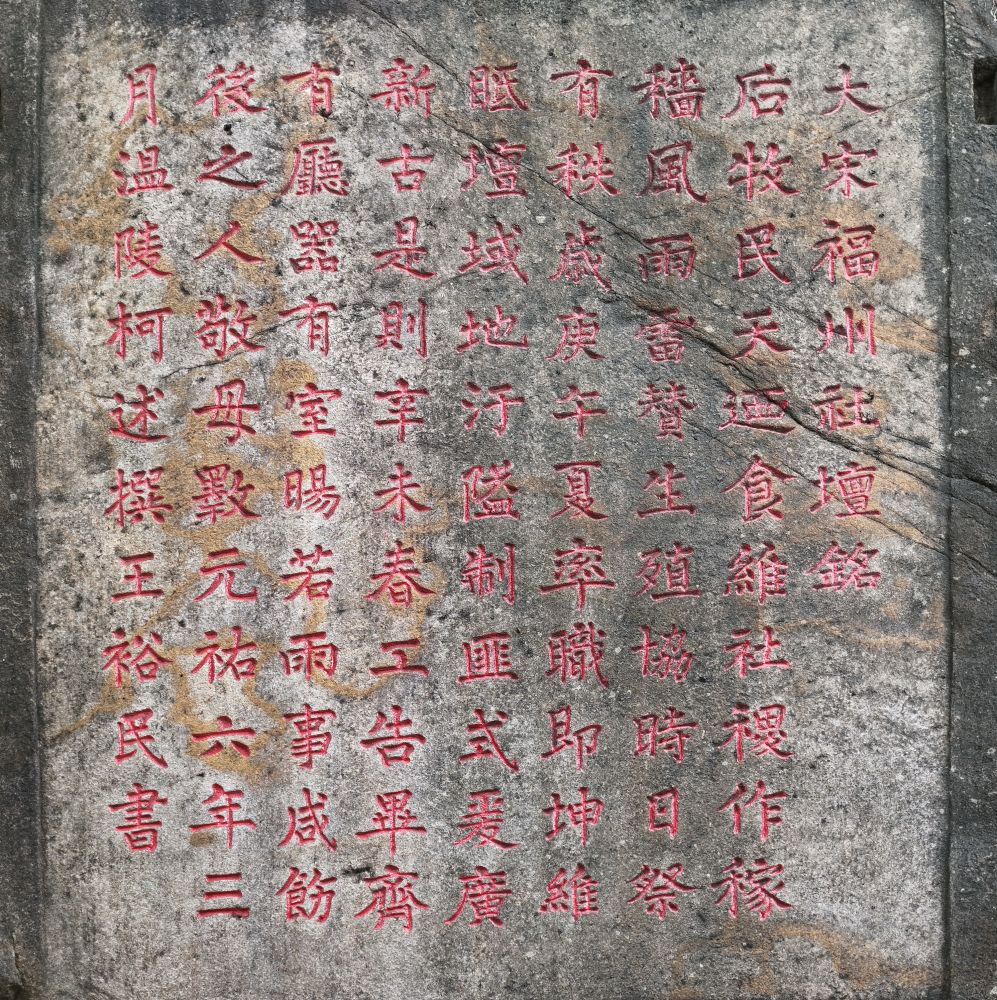 大宋福州社壇銘
后牧民天迺食維社稷作稼
穡風雨雷贊生殖協時日祭
有秩歲庚午夏率職即坤維
眂壇域地汙隘制匪式爰廣
新古是則辛未春工告畢齊
有廳器有室暘若雨事咸飭
後之人敬毋斁元祐六年三
月溫陵柯述撰王裕民書